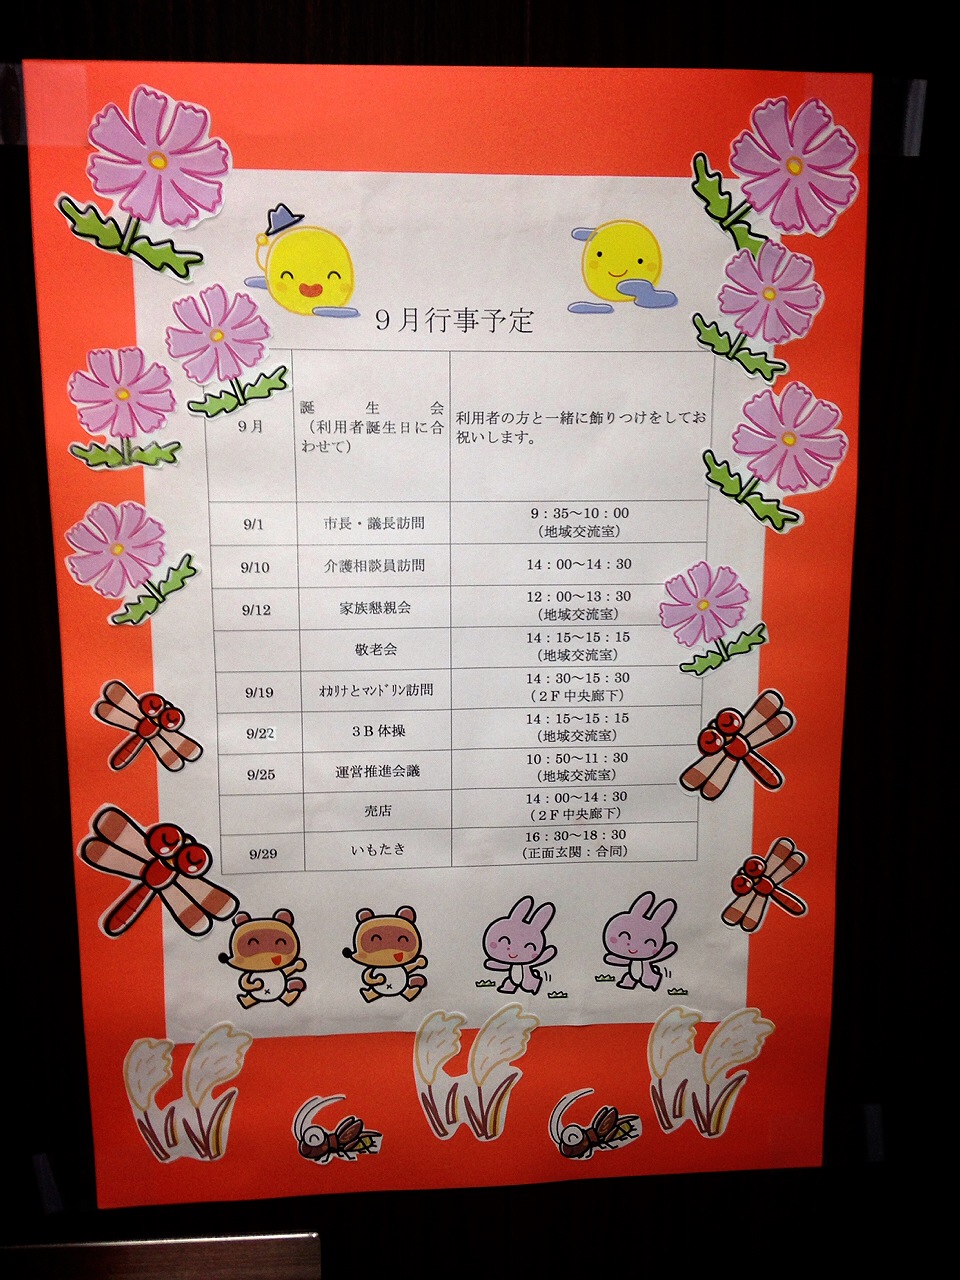 ９月行事予定
９月
誕生会
（利用者誕生日に合
わせて）
利用者の方と一緒に飾りつけをしてお
祝いします。
9/1
市長・議長訪問
9：35～10：00
（地域交流室）
9/10
介護相談員訪問
14：00～14：30
9/12
家族懇親会
12：00～13：30
（地域交流室）
敬老会
14：15～15：15
（地域交流室）
9/19
ｵｶﾘﾅとﾏﾝﾄﾞﾘﾝ訪問
14：30～15：30
（２Ｆ中央廊下）
9/22
３Ｂ体操
14：15～15：15
（地域交流室）
9/25
運営推進会議
10：50～11：30
（地域交流室）
売店
14：00～14：30
（２Ｆ中央廊下）
9/29
いもたき
16：30～18：30
（正面玄関：合同）